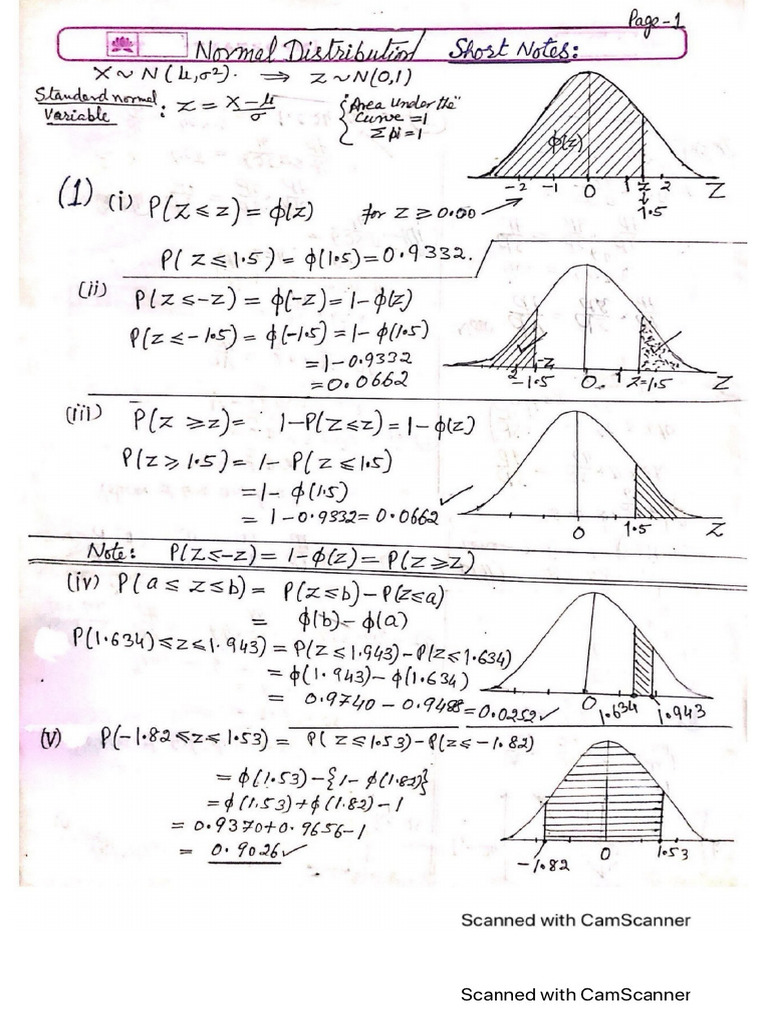 Page-1
Normal Distribution Short Notes:
X ~ N(μ,σ²). ⇒ Z ~ N(0,1)
Standard normal
Variable : Z = (X-μ)/σ
"Area under the"
Curve = 1
Σpi = 1
φ(z)
-2 -1 0 1 z 2 Z
1.5
(1) (i) P(Z ≤ z) = φ(z) for Z ≥ 0.00
P(Z ≤ 1.5) = φ(1.5) = 0.9332.
(ii) P(Z ≤ -z) = φ(-z) = 1-φ(z)
P(Z ≤ -1.5) = φ(-1.5) = 1-φ(1.5)
= 1-0.9332
= 0.0662
-z
2 -1.5 0 1 z=1.5 Z
(iii) P(Z ≥ z) = 1-P(Z ≤ z) = 1-φ(z)
P(Z ≥ 1.5) = 1- P(Z ≤ 1.5)
= 1- φ(1.5)
= 1-0.9332 = 0.0662
0 1.5 Z
Note: P(Z ≤ -z) = 1-φ(z) = P(Z ≥ z)
(iv) P(a ≤ z ≤ b) = P(Z ≤ b) - P(Z ≤ a)
= φ(b) - φ(a)
P(1.634) ≤ z ≤ 1.943) = P(Z ≤ 1.943) - P(Z ≤ 1.634)
= φ(1.943) - φ(1.634)
= 0.9740 - 0.9488 = 0.0252 ✓
0 1.634 1.943
(v) P(-1.82 ≤ z ≤ 1.53) = P(Z ≤ 1.53) - P(Z ≤ -1.82)
= φ(1.53) - {1- φ(1.82)}
= φ(1.53) + φ(1.82) - 1
= 0.9370 + 0.9656 - 1
= 0.9026 ✓
-1.82 0 1.53
Scanned with CamScanner
Scanned with CamScanner